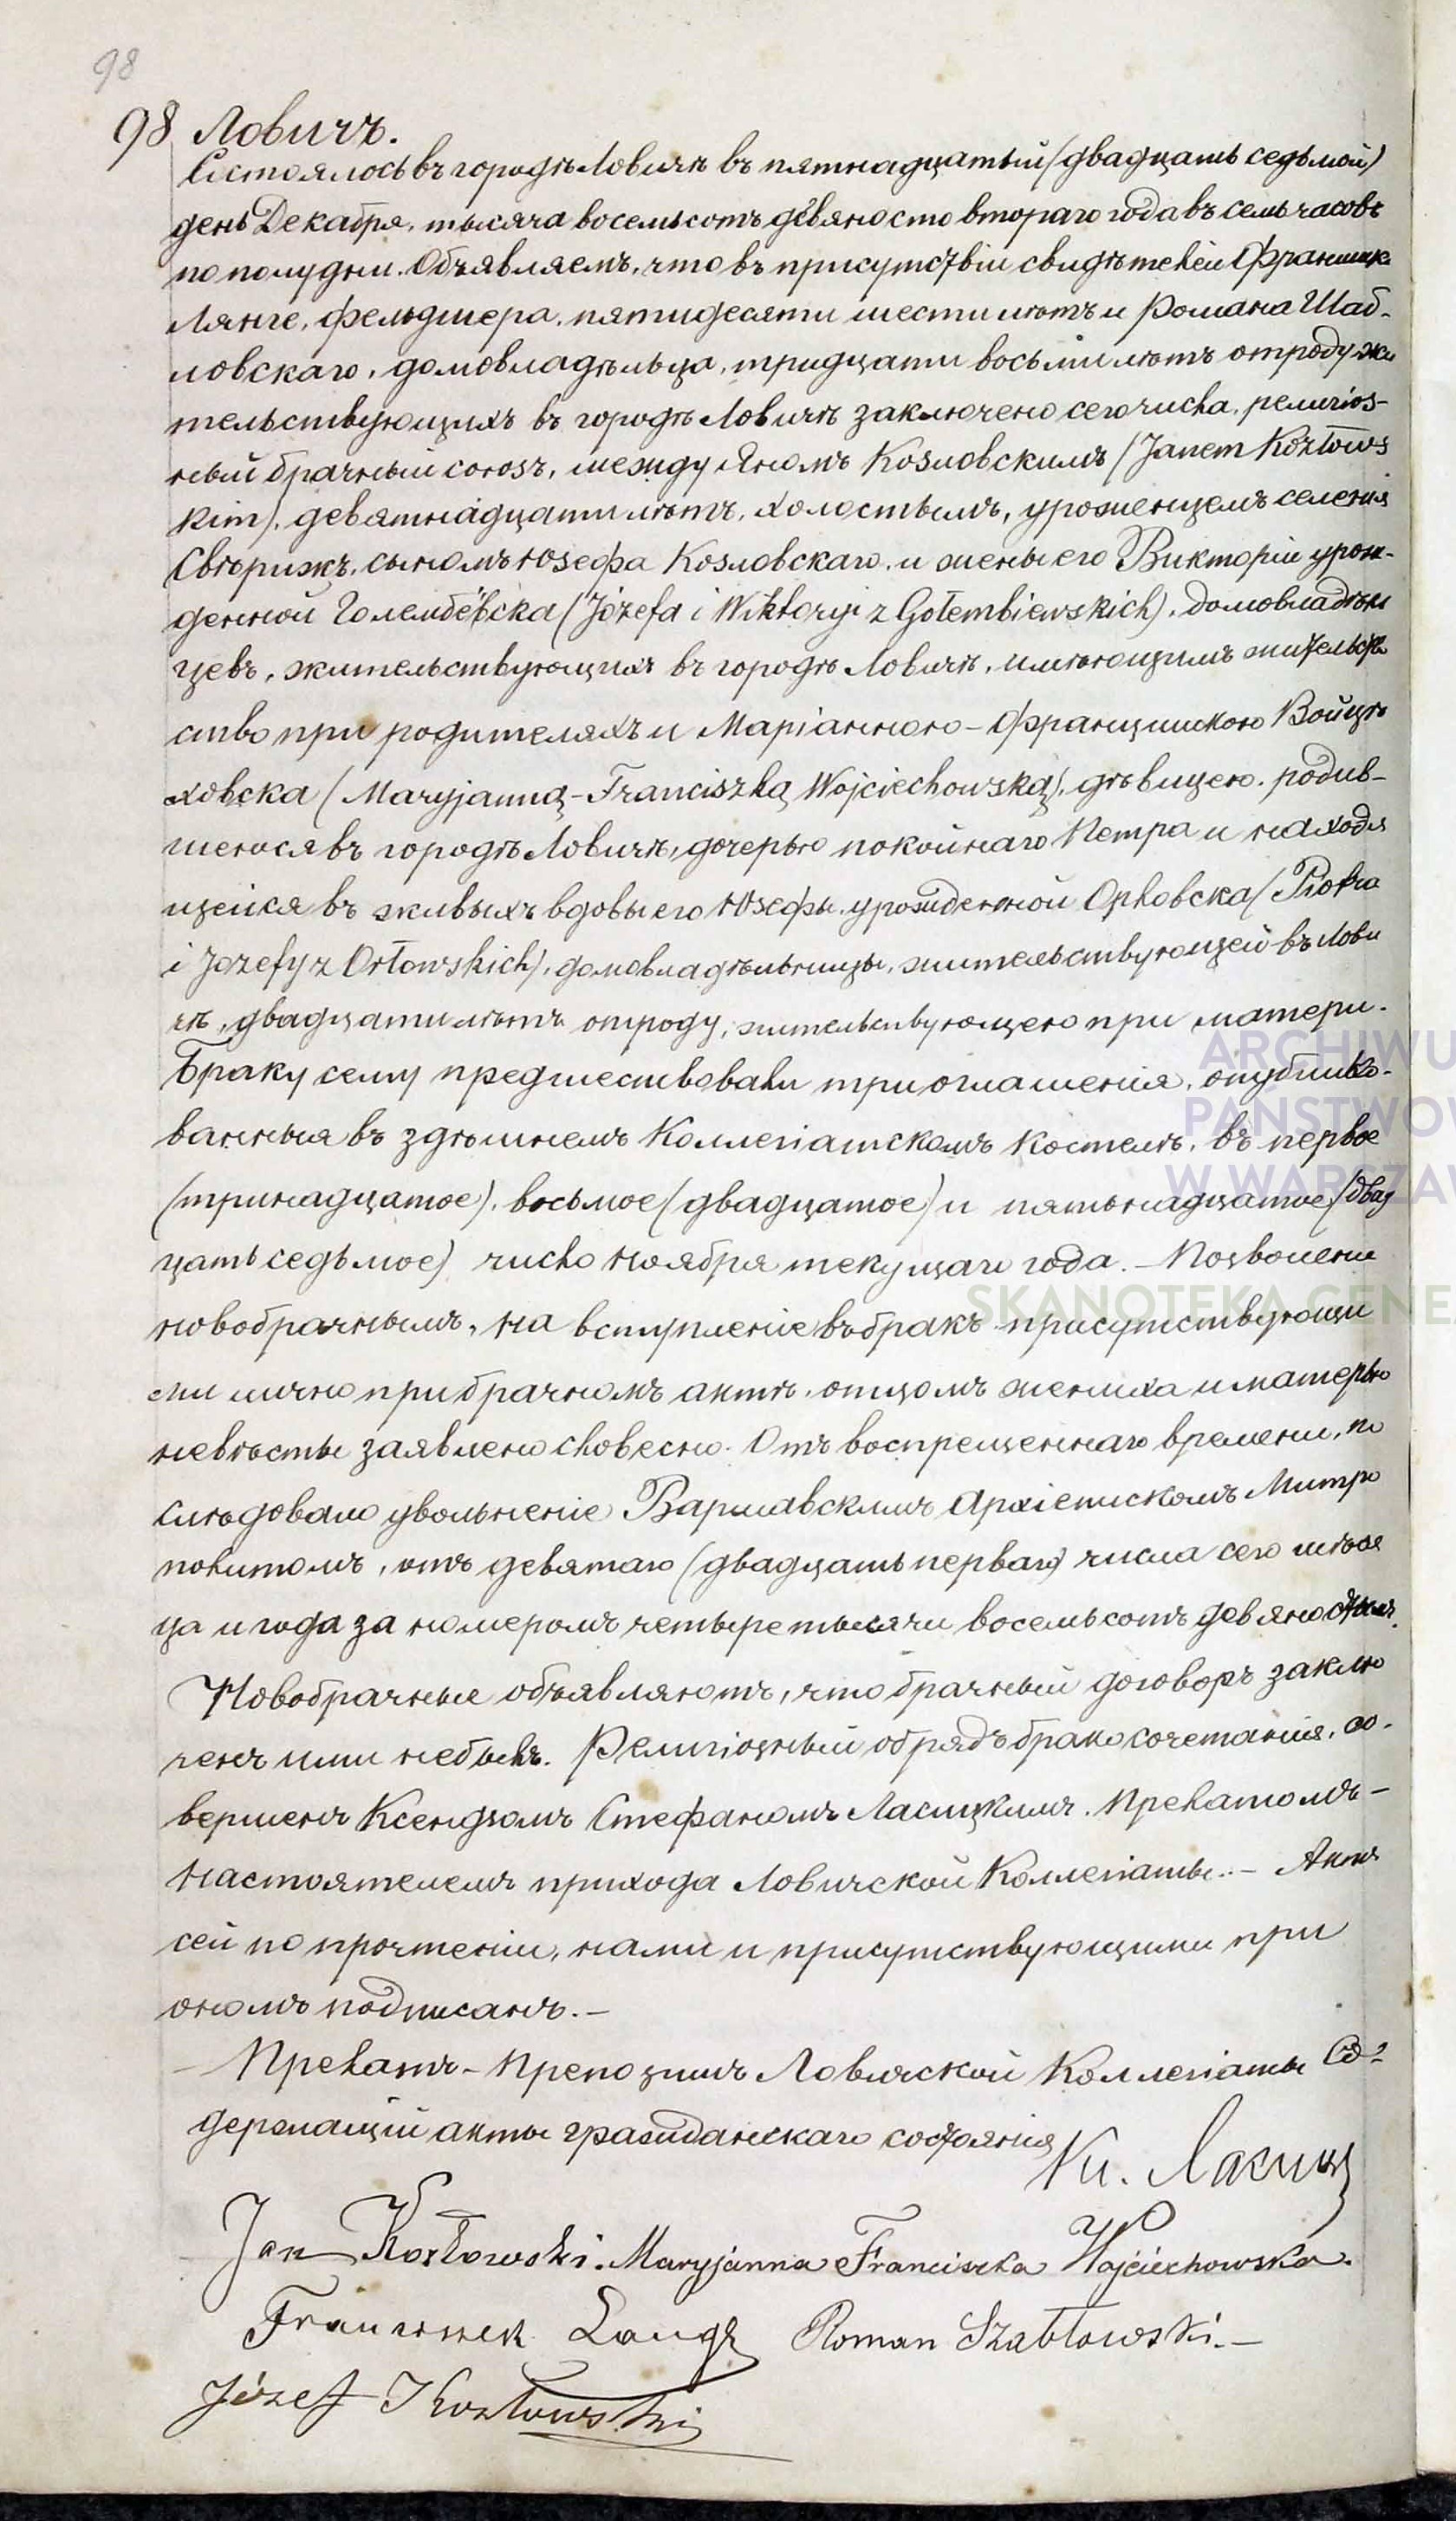 98
98 Ловичъ.
Состоялось въ городѣ Ловичѣ въ пятнадцатый (двадцать седьмой)
день Декабря, тысяча восемьсотъ девяносто втораго года въ семь часовъ
по полудни. Объявляемъ, что въ присутствіи свидѣтелей Францишка
Лянге, фельдшера, пятидесяти шести лѣтъ и Романа Шаб-
ловскаго, домовладѣльца, тридцати восьми лѣтъ отроду жи
тельствующихъ въ городѣ Ловичѣ заключено сего числа, религіоз-
ный брачный союзъ, между Яномъ Козловскимъ (Janem Kozłows
kim), девятнадцати лѣтъ, холостымъ, уроженцемъ селенія
Свѣрижъ, сыномъ Юзефа Козловскаго, и жены его Викторіи урож-
денной Голембевска (Józefa i Wiktoryi z Gołembiewskich), домовладѣль
цевъ, жительствующихъ въ городѣ Ловичѣ, имѣющимъ жительст
ство при родителяхъ и Маріанною-Францишкою Войцѣ
ховска (Maryjanną-Franciszką Wojciechowską), дѣвицею, родив-
шеюся въ городѣ Ловичѣ, дочерью покойнаго Петра и находя
щейся въ живыхъ вдовы его Юзефы, урожденной Орловска (Piotra
i Jozefy z Orłowskich), домовладѣльницы, жительствующей въ Лови
чѣ, двадцати лѣтъ отроду, жительствующею при матери.
Браку сему предшествовали три оглашенія, опублико-
ванныя въ здѣшнемъ Коллегіатскомъ Костелѣ, въ первое
(тринадцатое), восьмое (двадцатое) и пятьнадцатое (двад
цать седьмое) число Ноября текущаго года. – Позволеніе
новобрачнымъ, на вступленіе въ бракъ присутствующи
ми лично при брачномъ актѣ, отцомъ жениха и матерью
невѣсты заявлено словесно. Отъ воспрещеннаго времени, по
слѣдовало увольненіе Варшавскимъ Архіепископомъ Митро
политомъ, отъ девятаго (двадцать перваго) числа сего мѣся
ца и года за номеромъ четыре тысячи восемьсотъ
Новобрачные объявляютъ, что брачный договоръ заклю
ченъ ими небылъ. Религіозный обрядъ бракосочетанія, со-
вершенъ Ксендзомъ Стефаномъ Ласицкимъ. Прелатомъ –
Настоятелемъ прихода Ловичской Коллегіаты. – Актъ
сей по прочтеніи, нами и присутствующими при
ономъ подписанъ. –
Прелатъ – Препозитъ Ловичской Коллегіаты Со-
держащій акты гражданскаго состоянія
Кс. Ласицк
Jan Kozłowski. Maryjanna Franciszka Wojciechowska.
Franciszek Lange Roman Szabłowski. –
Józef Kozłowski
ARCHIWU
PAŃSTWOW
W WARSZAW
SKANOTEKA GENE